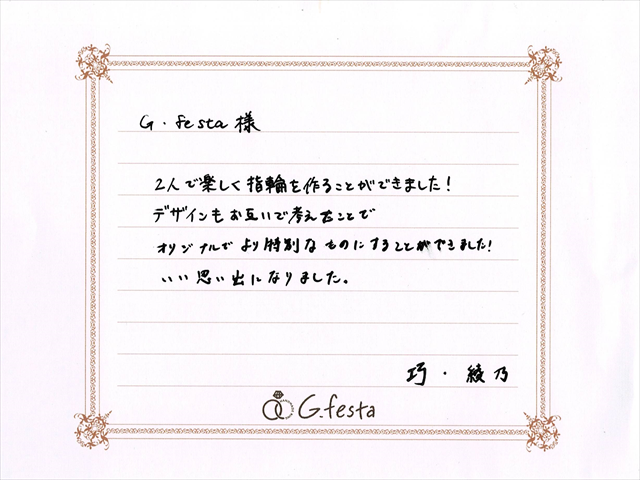 G.festa様
2人で楽しく指輪を作ることができました!
デザインもお互いで考えたことで
オリジナルでより特別なものにすることができました!
いい思い出になりました。
巧・綾乃
G.festa